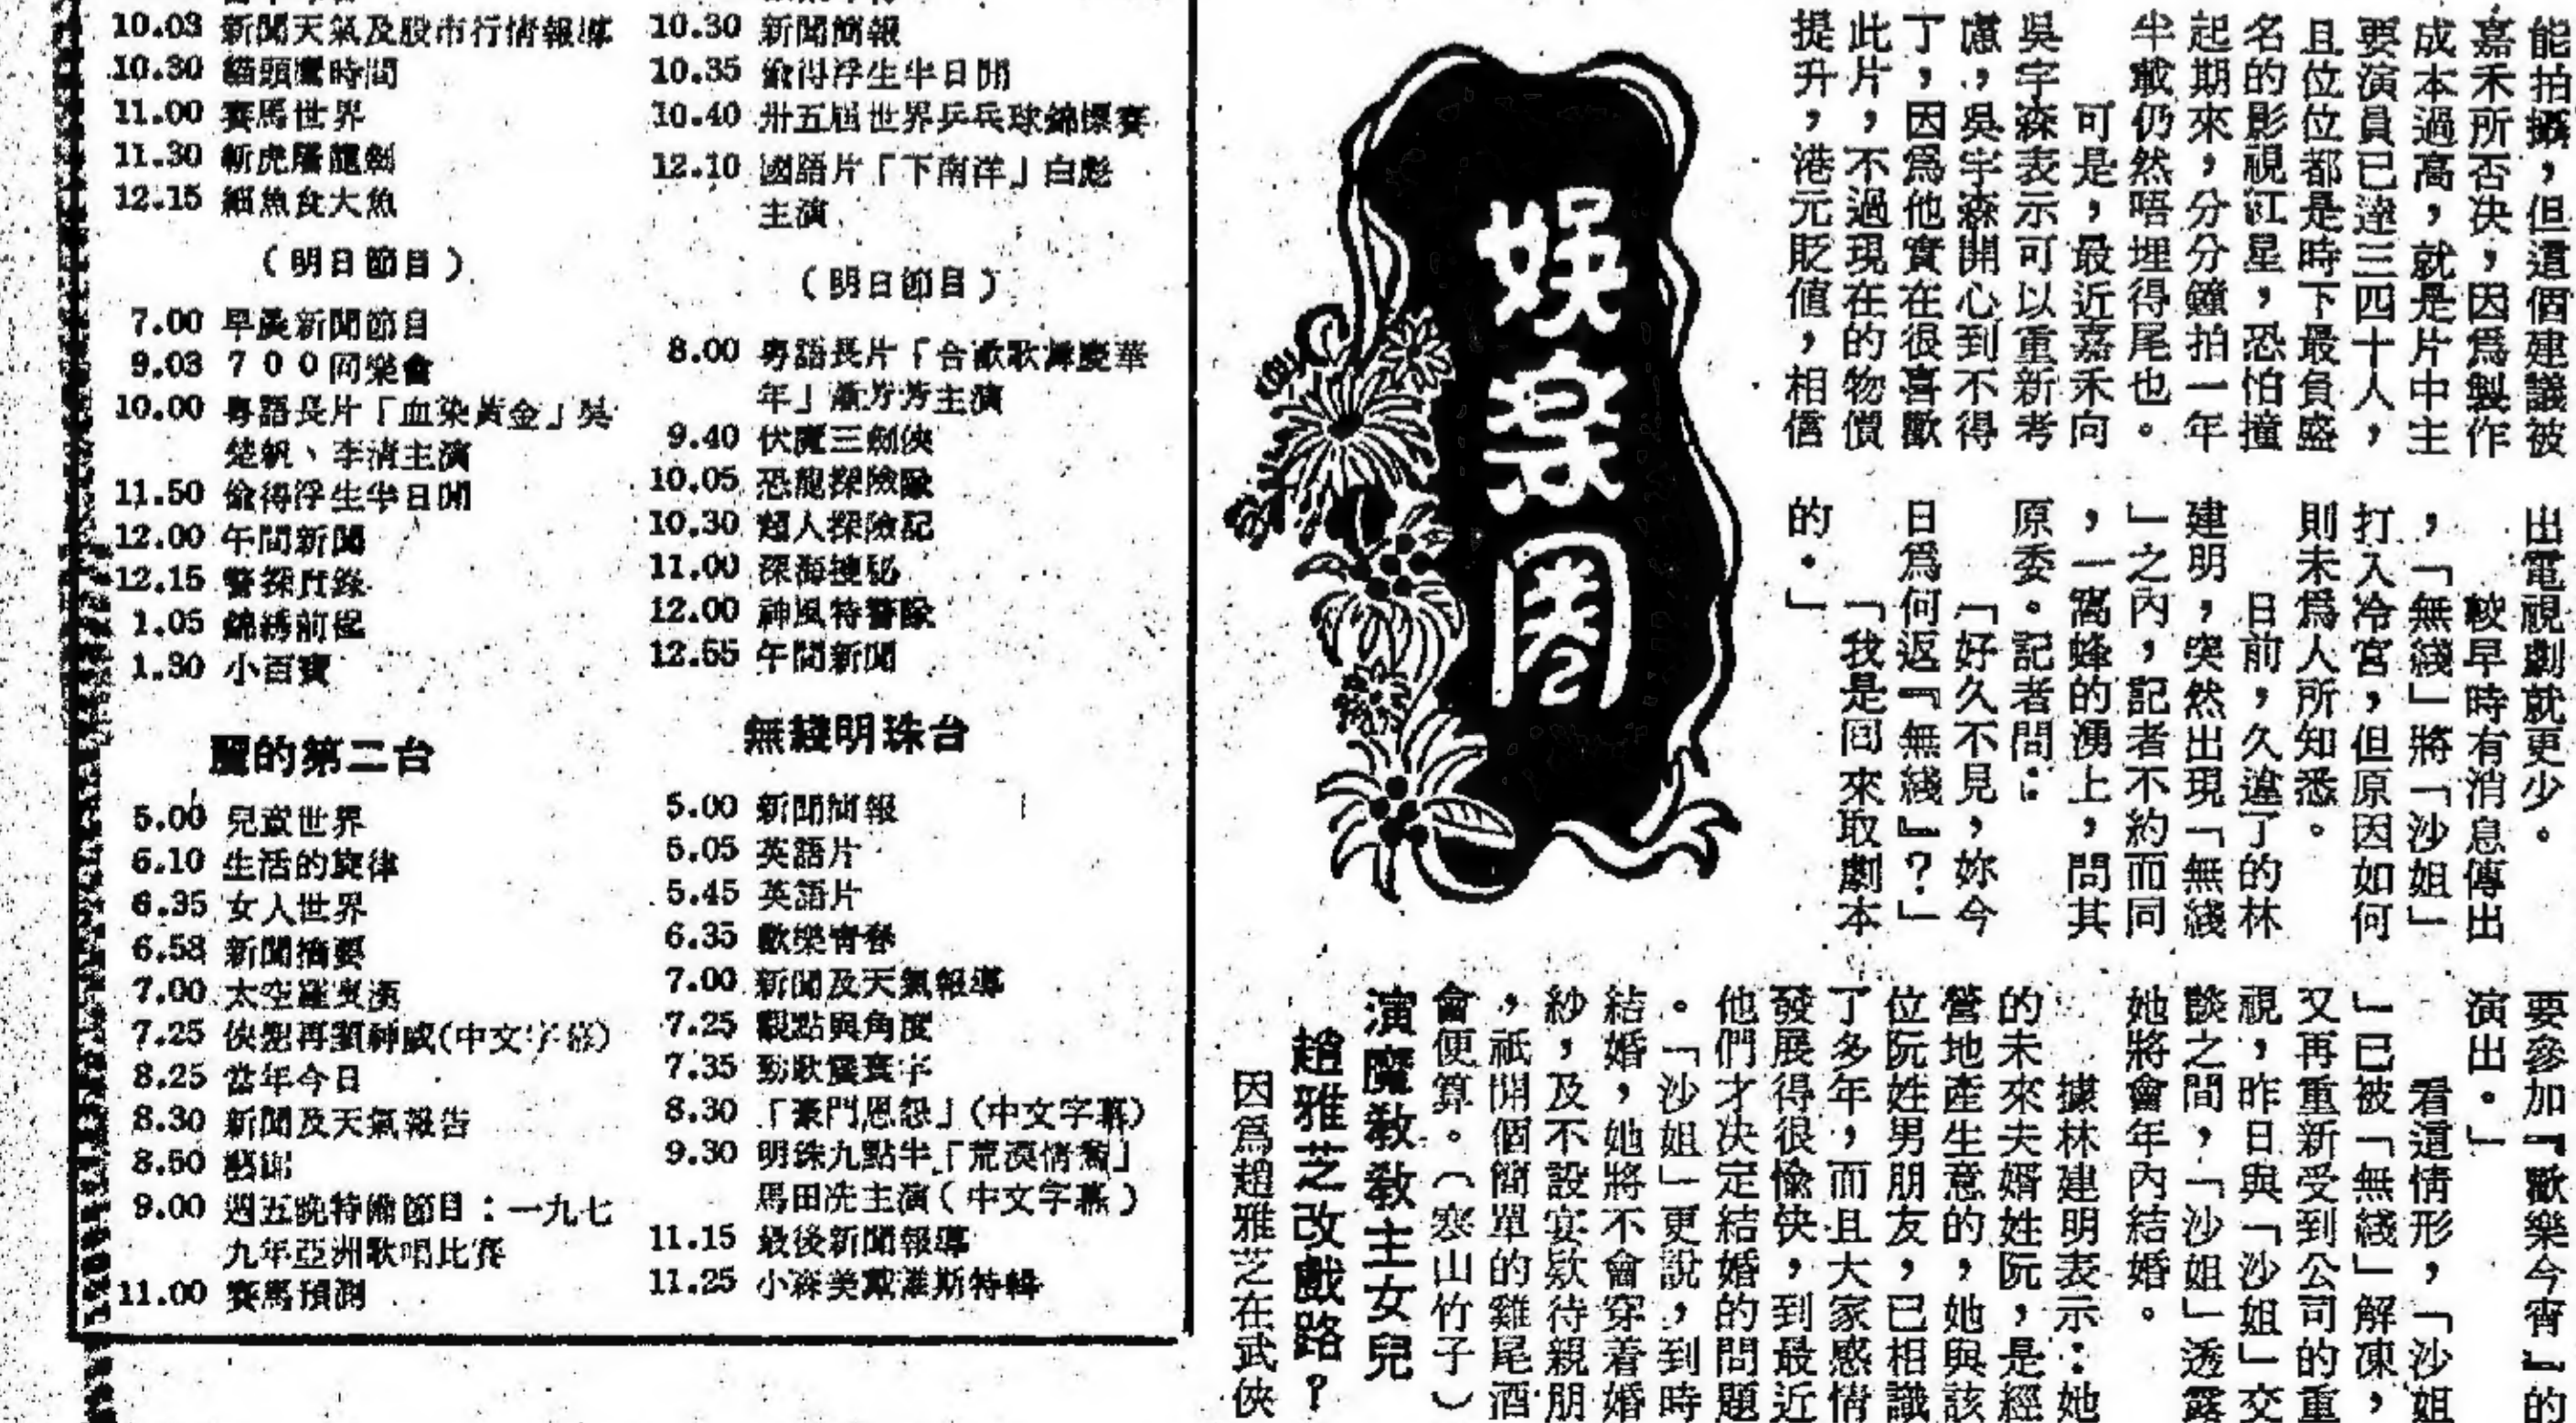 10.03 新聞天氣及股市行情報導
10.30 貓頭鷹時間
11.00 賽馬世界
11.30 新虎屠龍劍
12.15 細魚食大魚
（明日節目）
7.00 早晨新聞節目
9.03 700同樂會
10.00 粵語長片「血染黃金」吳
楚帆、李清主演
11.50 偷得浮生半日閒
12.00 午間新聞
12.15 警探實錄
1.05 錦綉前程
1.30 小百寶
麗的第二台
5.00 兒童世界
6.10 生活的旋律
6.35 女人世界
6.58 新聞摘要
7.00 太空羅賓漢
7.25 俠聖再顯神威(中文字幕)
8.25 當年今日
8.30 新聞及天氣報告
8.50
9.00 週五晚特備節目：一九七
九年亞洲歌唱比賽
11.00 賽馬預測
10.30 新聞簡報
10.35 偷得浮生半日閒
10.40 卅五屆世界乒乓球錦標賽
12.10 國語片「下南洋」白彪
主演
（明日節目）
8.00 粵語長片「合歡歌舞慶華
年」蕭芳芳主演
9.40 伏魔三劍俠
10.05 恐龍探險隊
10.30 超人探險記
11.00 深海搜秘
12.00 神風特警隊
12.55 午間新聞
無綫明珠台
5.00 新聞簡報
5.05 英語片
5.45 英語片
6.35 歡樂青春
7.00 新聞及天氣報導
7.25 觀點與角度
7.35 勁歌震寰宇
8.30 「豪門恩怨」(中文字幕)
9.30 明珠九點半「荒漠情鴛」
馬田冼主演(中文字幕)
11.15 最後新聞報導
11.25 小森美戴維斯特輯
娛樂圈
能拍攝，但這個建議被
嘉禾所否决，因爲製作
成本過高，就是片中主
要演員已達三四十人，
且位位都是時下最負盛
名的影視紅星，恐怕撞
起期來，分分鐘拍一年
半載仍然唔埋得尾也。
可是，最近嘉禾向
吳宇森表示可以重新考
慮，吳宇森開心到不得
了，因爲他實在很喜歡
此片，不過現在的物價
提升，港元貶值，相信
出電視劇就更少。
較早時有消息傳出
，「無綫」將「沙姐」
打入冷宮，但原因如何
則未爲人所知悉。
日前，久違了的林
建明，突然出現「無綫
」之內，記者不約而同
，一窩蜂的湧上，問其
原委。記者問：
「好久不見，妳今
日爲何返『無綫』？」
「我是回來取劇本
的。」
要參加『歡樂今宵』的
演出。」
看這情形，「沙姐
」已被「無綫」解凍，
又再重新受到公司的重
視，昨日與「沙姐」交
談之間，「沙姐」透露
她將會年內結婚。
據林建明表示：她
的未來夫婿姓阮，是經
營地產生意的，她與該
位阮姓男朋友，已相識
了多年，而且大家感情
發展得很愉快，到最近
他們才决定結婚的問題
。「沙姐」更說，到時
結婚，她將不會穿着婚
紗，及不設宴欵待親朋
，祇開個簡單的雞尾酒
會便算。（寒山竹子）
演魔教教主女兒
趙雅芝改戲路？
因爲趙雅芝在武俠